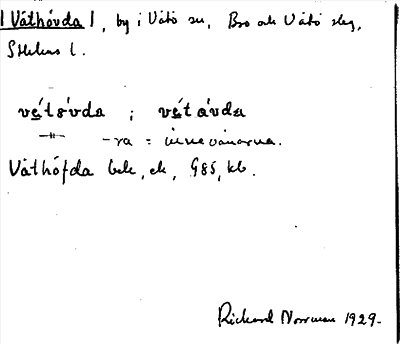 | Váthóvda |, by i Vátö sn, Bro och Vátö slg,
Sthlms l.
vé́tóvda ; vétávda
–ra = invånarna.
Váthófda bek, ek, G85, kb.
Rickard Norrman 1929.